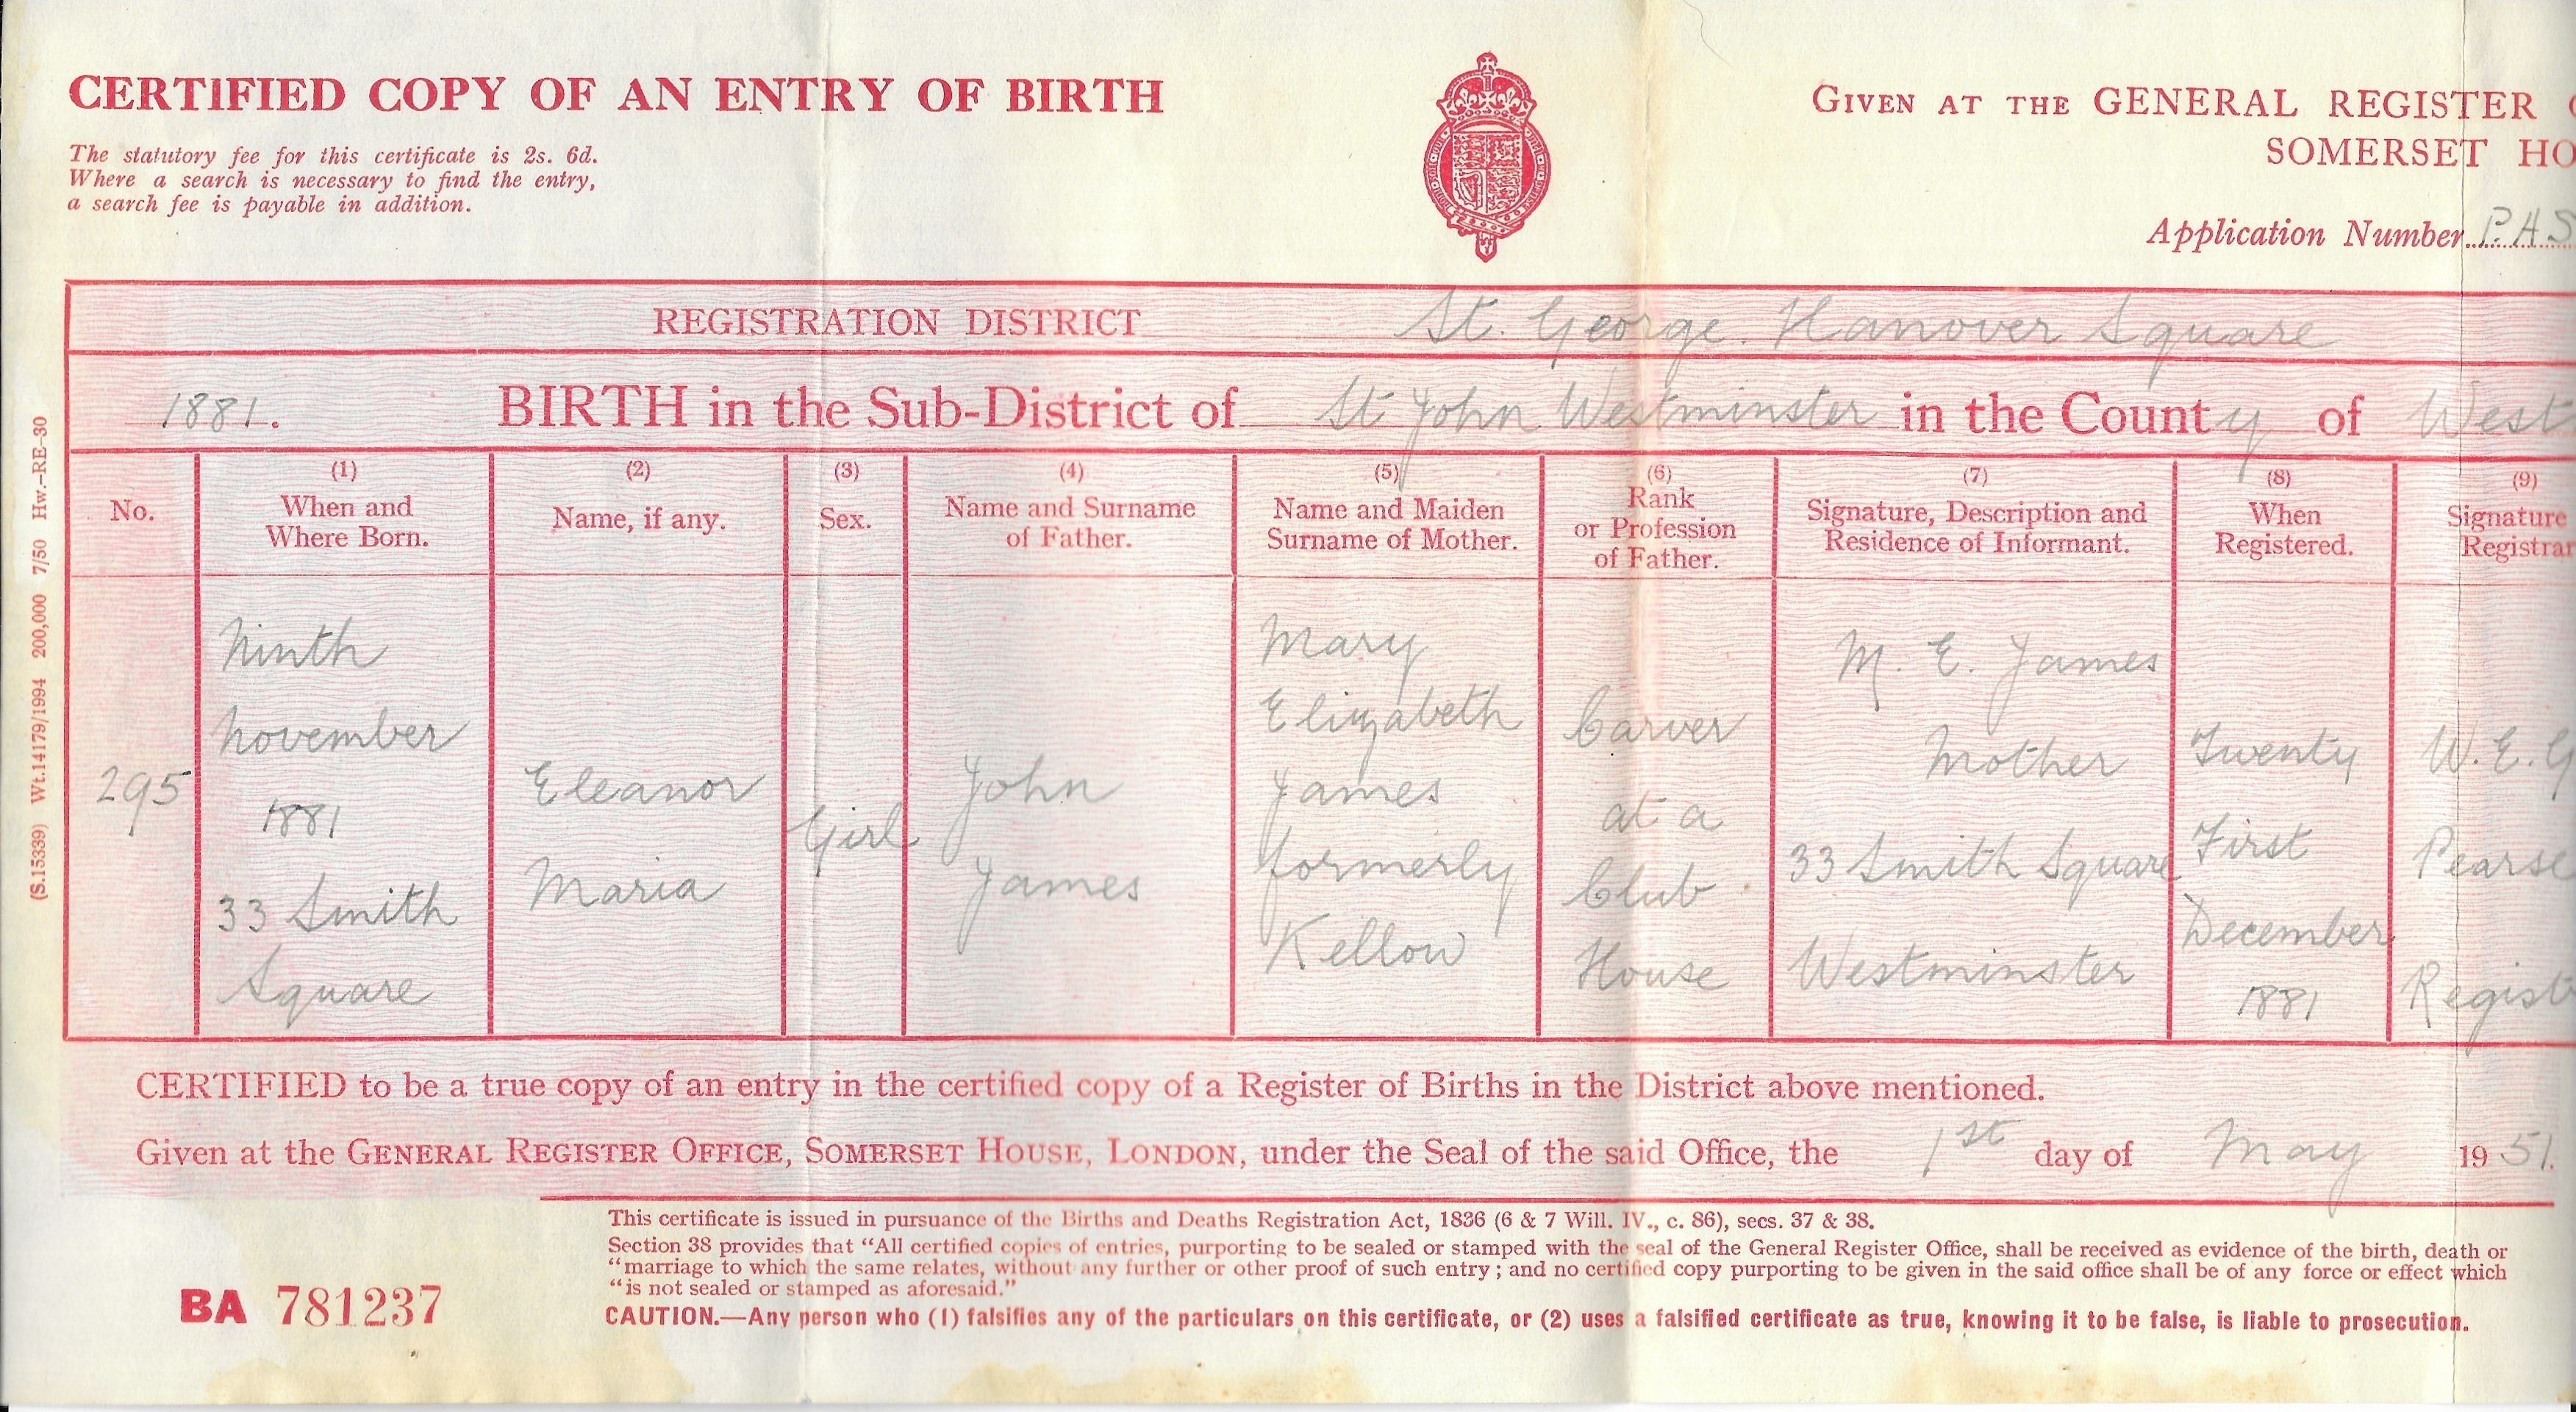 CERTIFIED COPY OF AN ENTRY OF BIRTH
GIVEN AT THE GENERAL REGISTER
SOMERSET HO
The statutory fee for this certificate is 2s. 6d.
Where a search is necessary to find the entry,
a search fee is payable in addition.
Application Number P.A.S
REGISTRATION DISTRICT St. George. Hanover Square
1881. BIRTH in the Sub-District of St John Westminster in the County of West
No.
(1)
When and
Where Born.
(2)
Name, if any.
(3)
Sex.
(4)
Name and Surname
of Father.
(5)
Name and Maiden
Surname of Mother.
(6)
Rank
or Profession
of Father.
(7)
Signature, Description and
Residence of Informant.
(8)
When
Registered.
(9)
Signature
Registrar
295
Ninth
November
1881
33 Smith
Square
Eleanor
Maria
Girl
John
James
Mary
Elizabeth
James
formerly
Kellow
Carver
at a
Club
House
M. E. James
Mother
33 Smith Square
Westminster
Twenty
First
December
1881
W. E. G
Pearse
Regist
CERTIFIED to be a true copy of an entry in the certified copy of a Register of Births in the District above mentioned.
Given at the GENERAL REGISTER OFFICE, SOMERSET HOUSE, LONDON, under the Seal of the said Office, the 1st day of May 1951.
This certificate is issued in pursuance of the Births and Deaths Registration Act, 1836 (6 & 7 Will. IV., c. 86), secs. 37 & 38.
Section 38 provides that “All certified copies of entries, purporting to be sealed or stamped with the seal of the General Register Office, shall be received as evidence of the birth, death or
“marriage to which the same relates, without any further or other proof of such entry; and no certified copy purporting to be given in the said office shall be of any force or effect which
“is not sealed or stamped as aforesaid.”
CAUTION.—Any person who (1) falsifies any of the particulars on this certificate, or (2) uses a falsified certificate as true, knowing it to be false, is liable to prosecution.
BA 781237
(S.15339) Wt.14179/1994 200,000 7/50 Hw.-RE-30